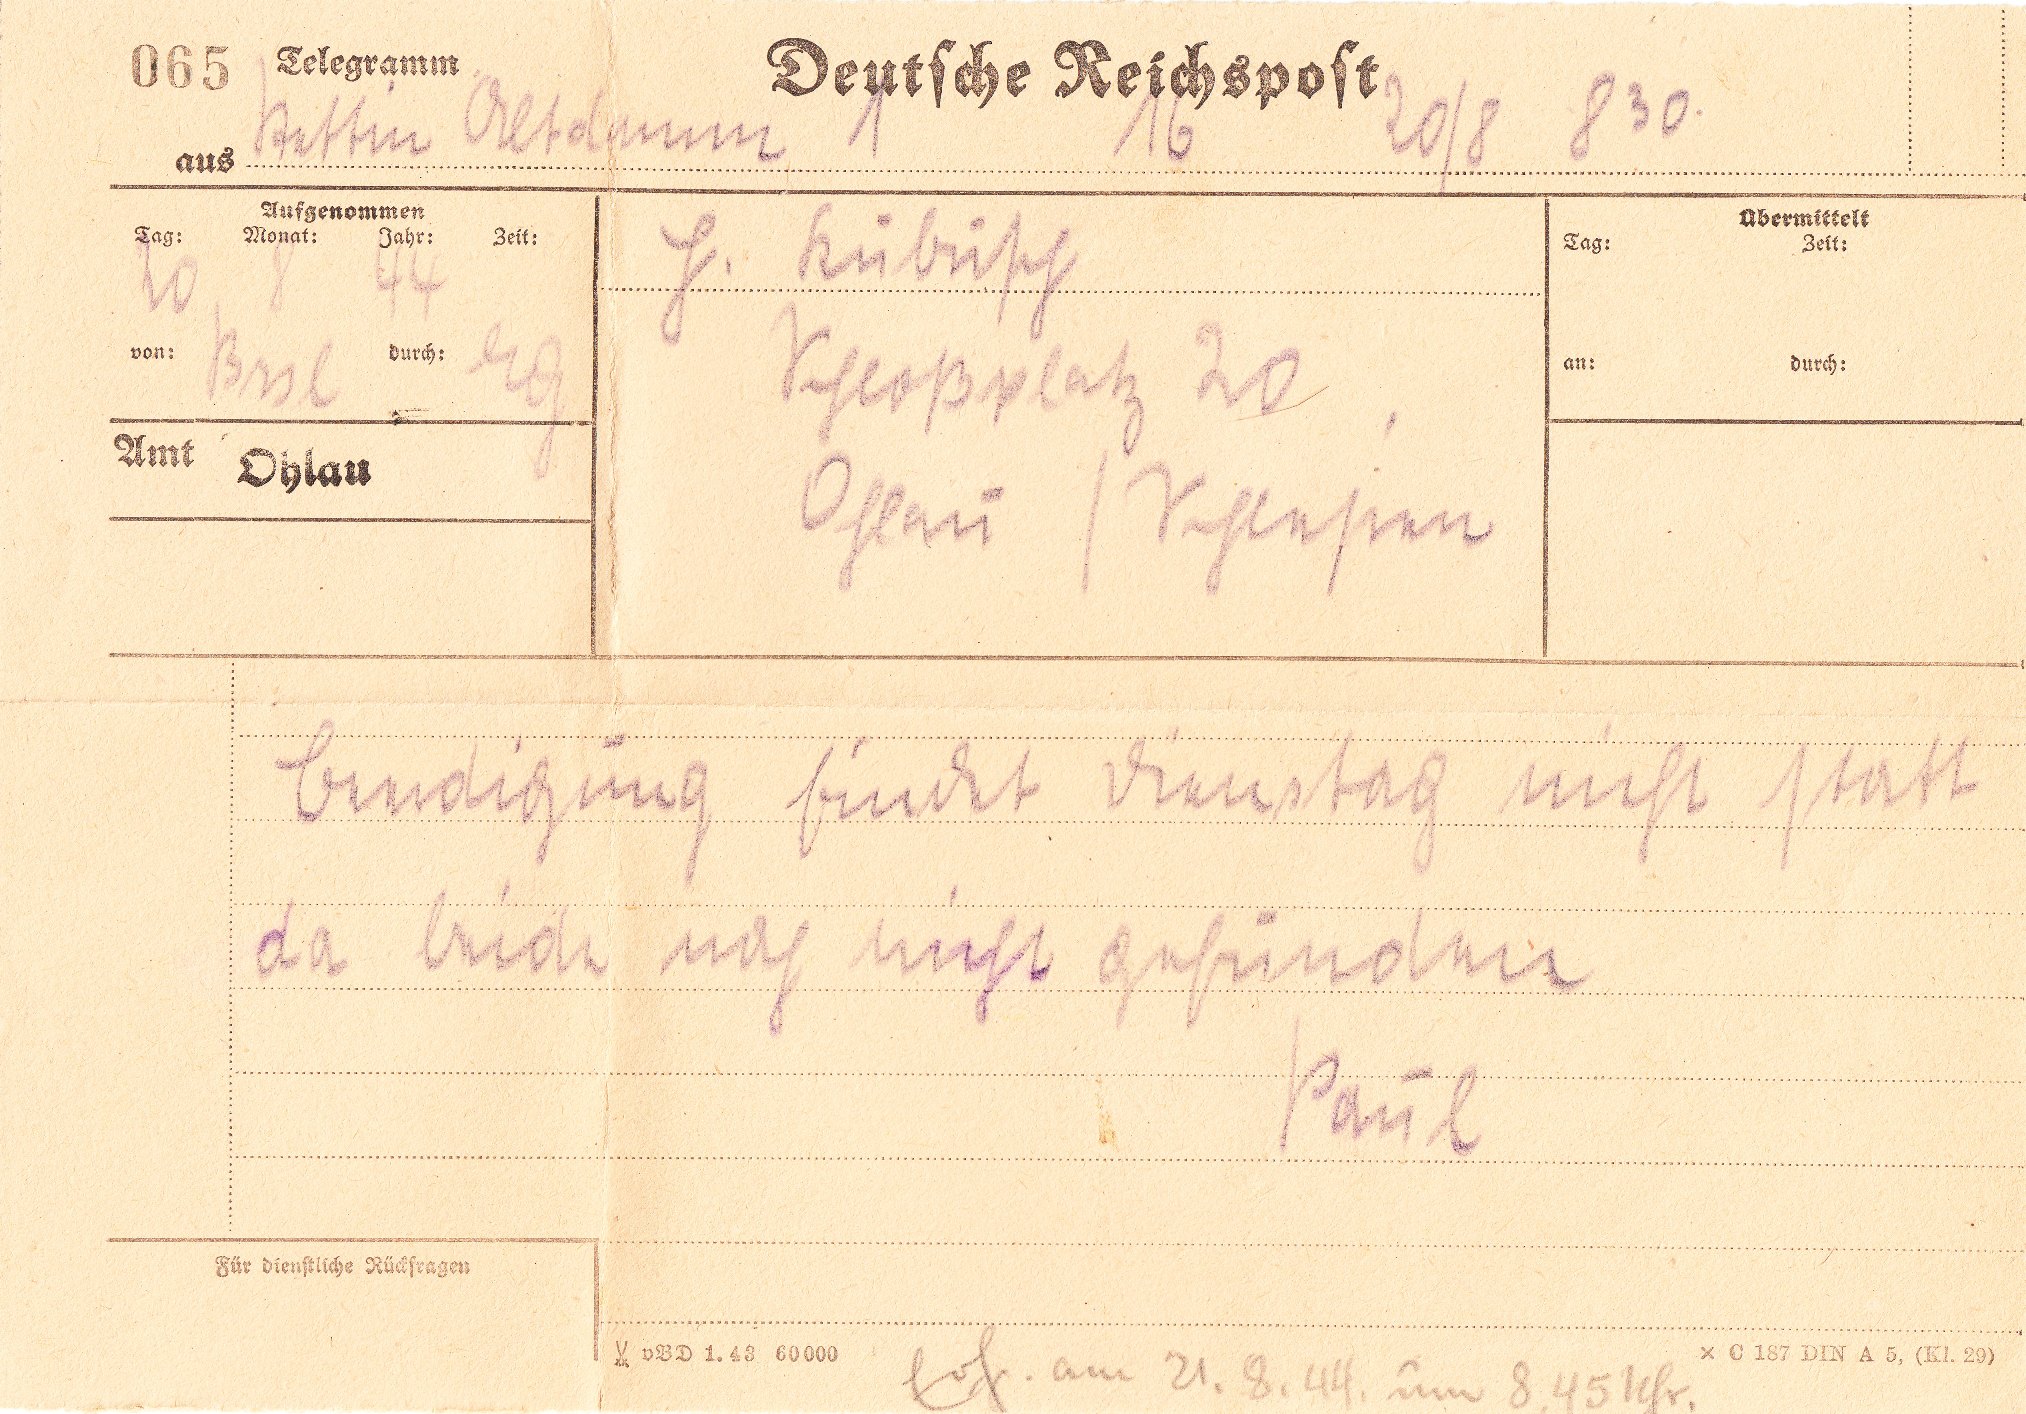 065 Telegramm Deutsche Reichspost
aus Stettin Altdamm 1 16 20/8 830.
Aufgenommen
Tag: Monat: Jahr: Zeit:
20 8 44
von: Brsl durch:
Amt Ohlau
H. Kubisch
Schloßplatz 20,
Ohlau / Schlesien
Übermittelt
Tag: Zeit:
an: durch:
Beerdigung findet Dienstag nicht statt
da beide noch nicht gefunden
Paul
Für dienstliche Rückfragen
vBD 1.43 60000
× C 187 DIN A 5, (Kl. 29)
am 21. 8. 44. um 8,45 Uhr.